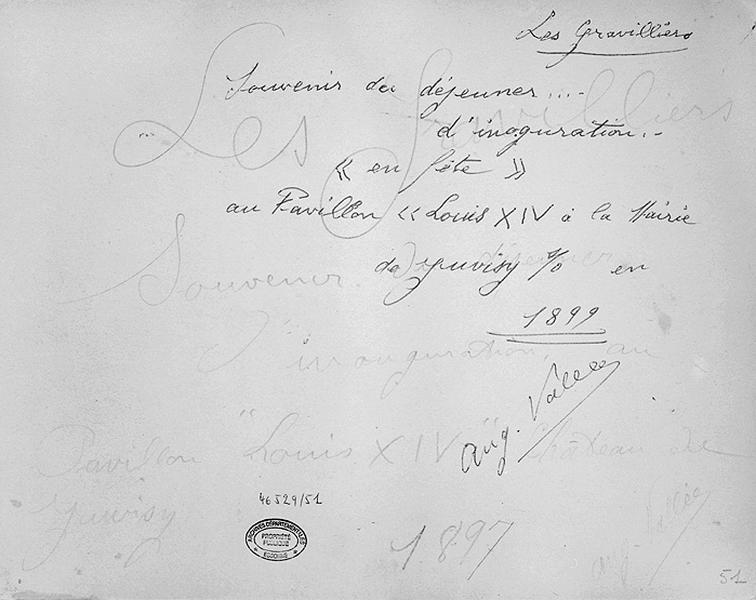 Les Gravilliers
Souvenir du déjeuner....-
d'inoguration.-
« en fête »
au Pavillon « Louis XIV à la Mairie
de Juvisy % en
1899
Aug. Vallée
Les Gravilliers
Souvenir du déjeuner
d'inauguration, au
Pavillon "Louis XIV" Château de
Juvisy
1897
Aug. Vallée
46529/51
ARCHIVES DÉPARTEMENTALES
PROPRIÉTÉ
PUBLIQUE
ESSONNE
51